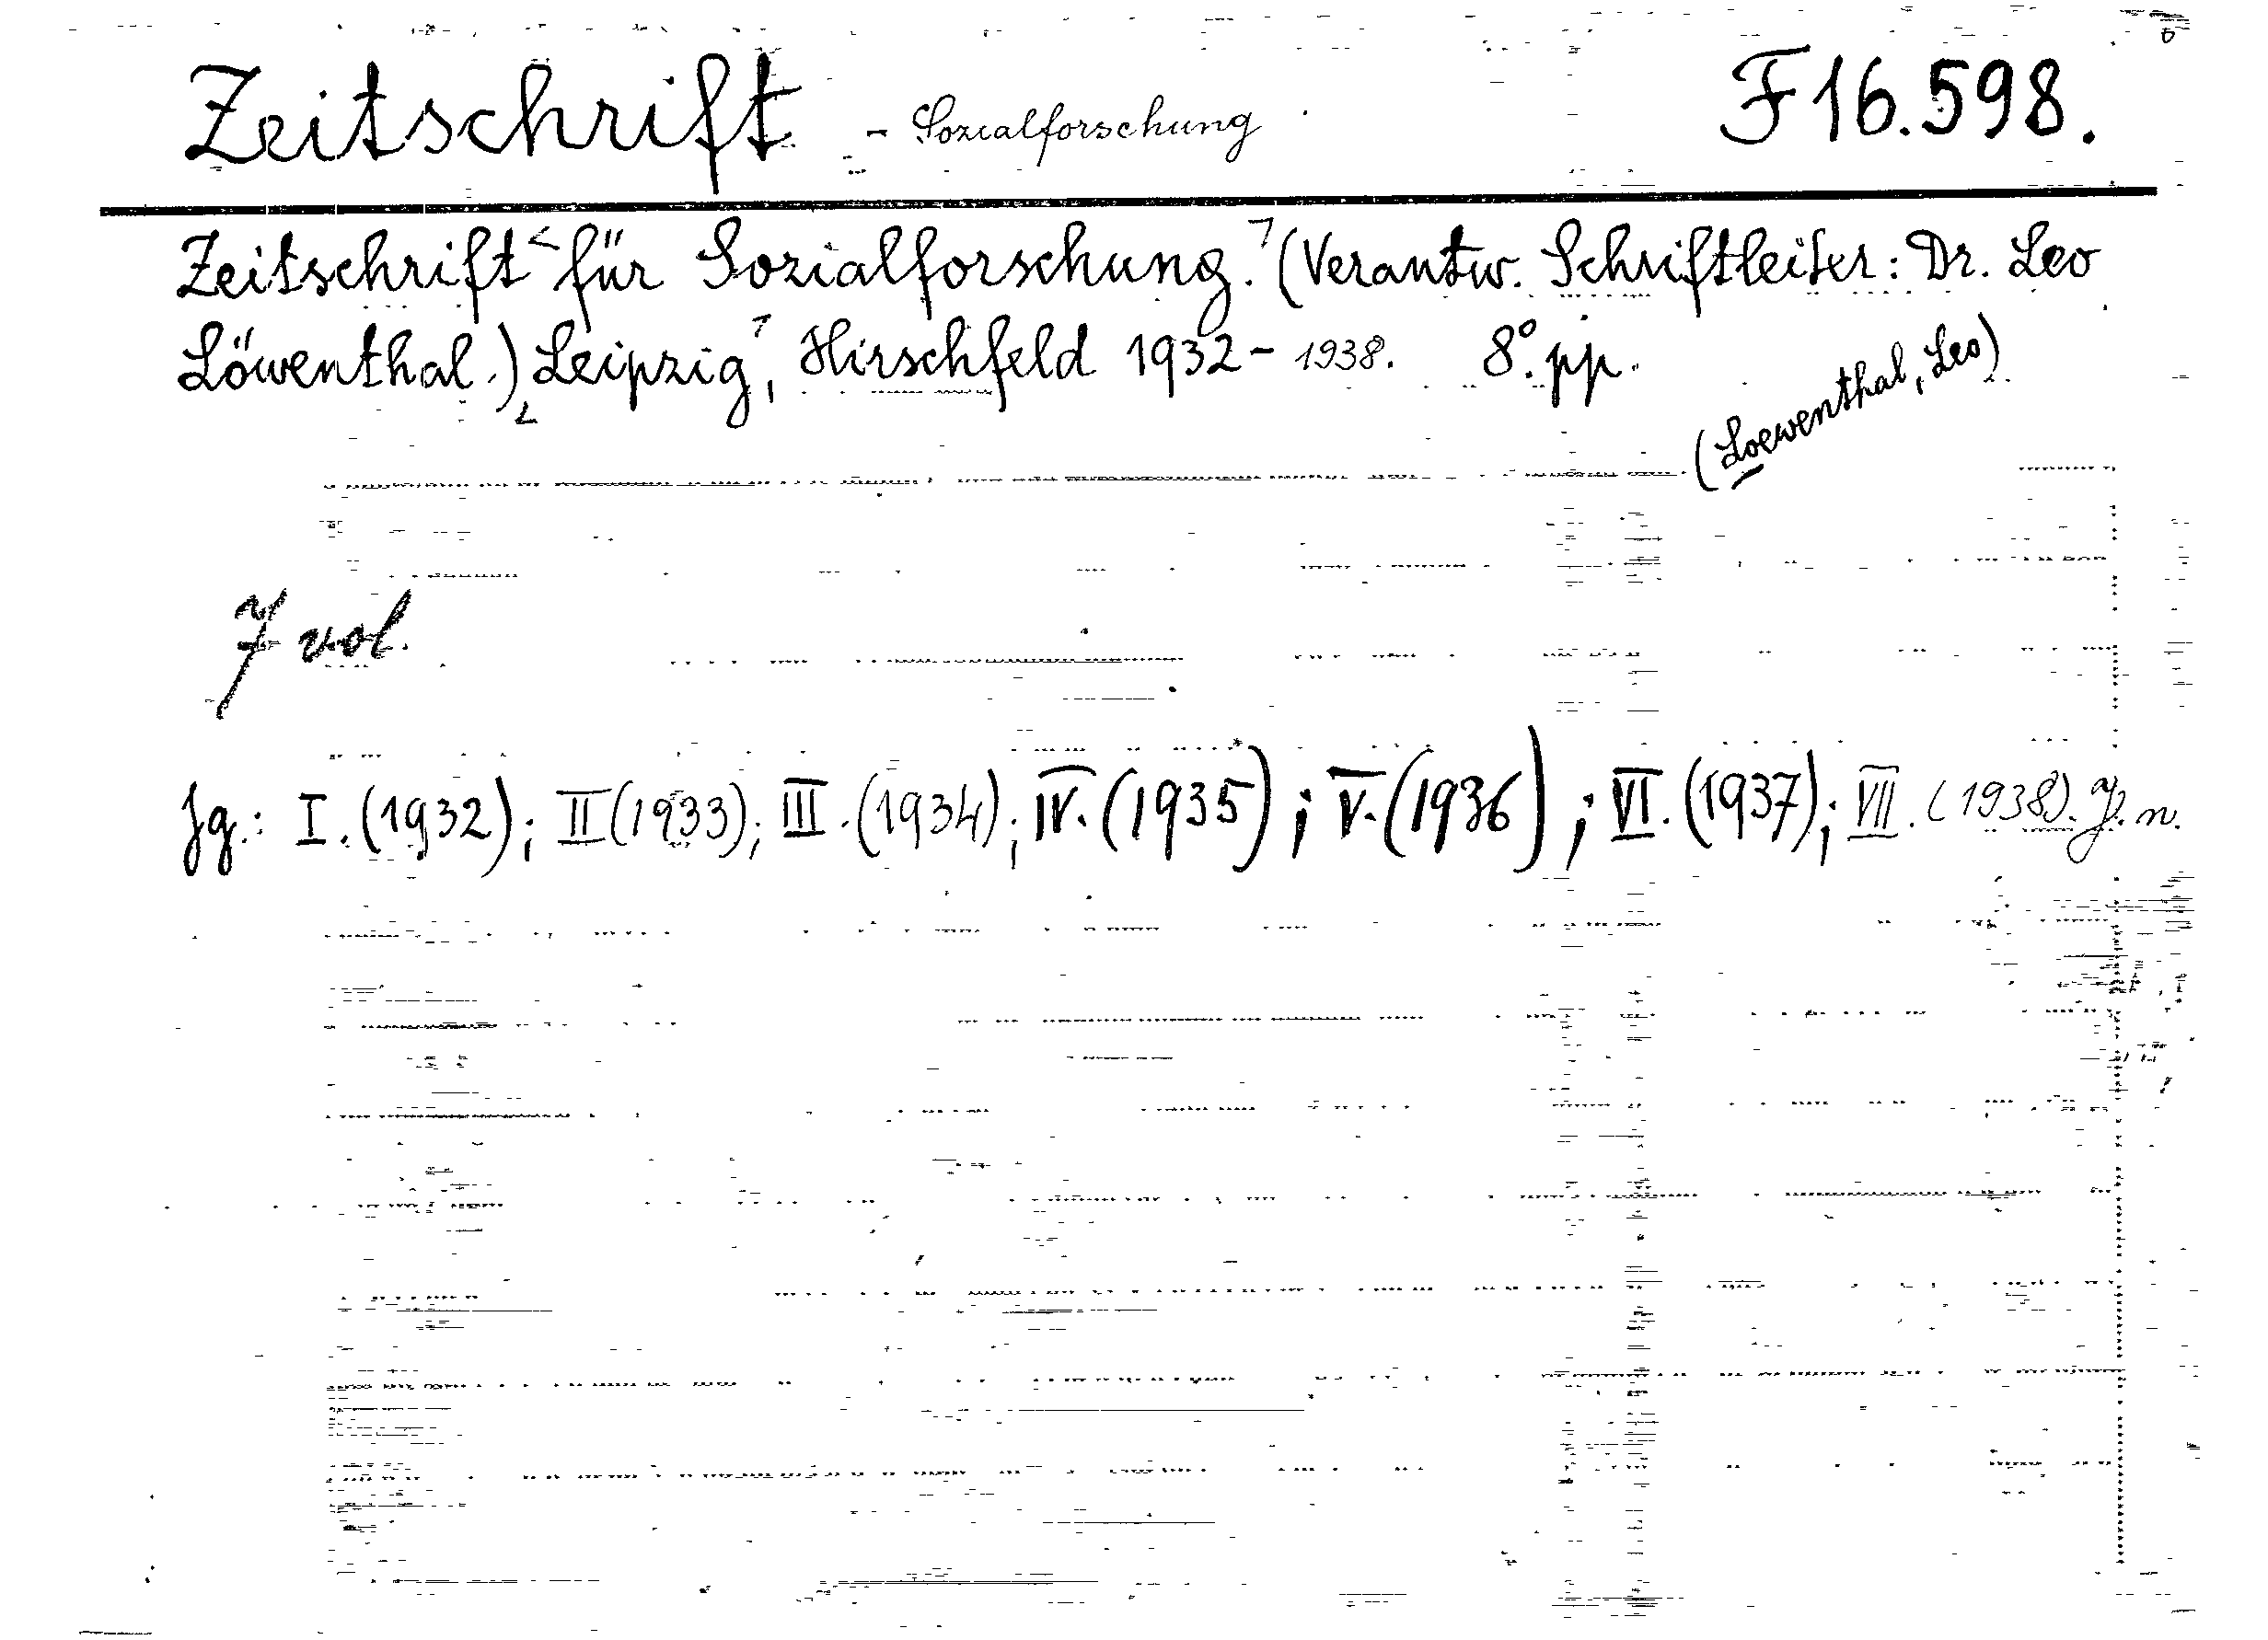 Zeitschrift - Sozialforschung F 16.598.
Zeitschrift für Sozialforschung. (Verantw. Schriftleiter: Dr. Leo
Löwenthal.) Leipzig, Hirschfeld 1932 - 1938. 8°. pp.
(Loewenthal, Leo)
7 vol.
Jg.: I. (1932); II (1933); III. (1934); IV. (1935); V. (1936); VI. (1937); VII. (1938).